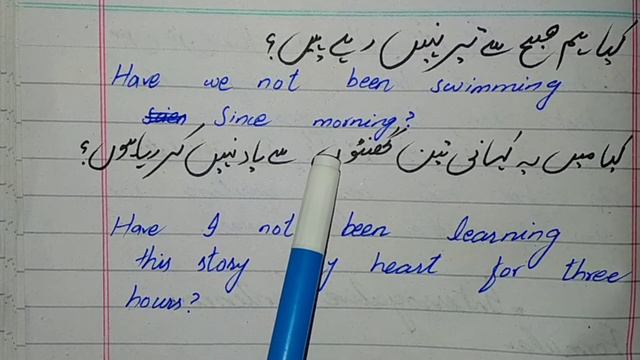 کیا ہم صبح سے تیر نہیں رہے ہیں؟
Have we not been swimming
since morning?
کیا میں یہ کہانی تین گھنٹوں سے یاد نہیں کر رہا ہوں؟
Have I not been learning
this story y heart for three
hours?